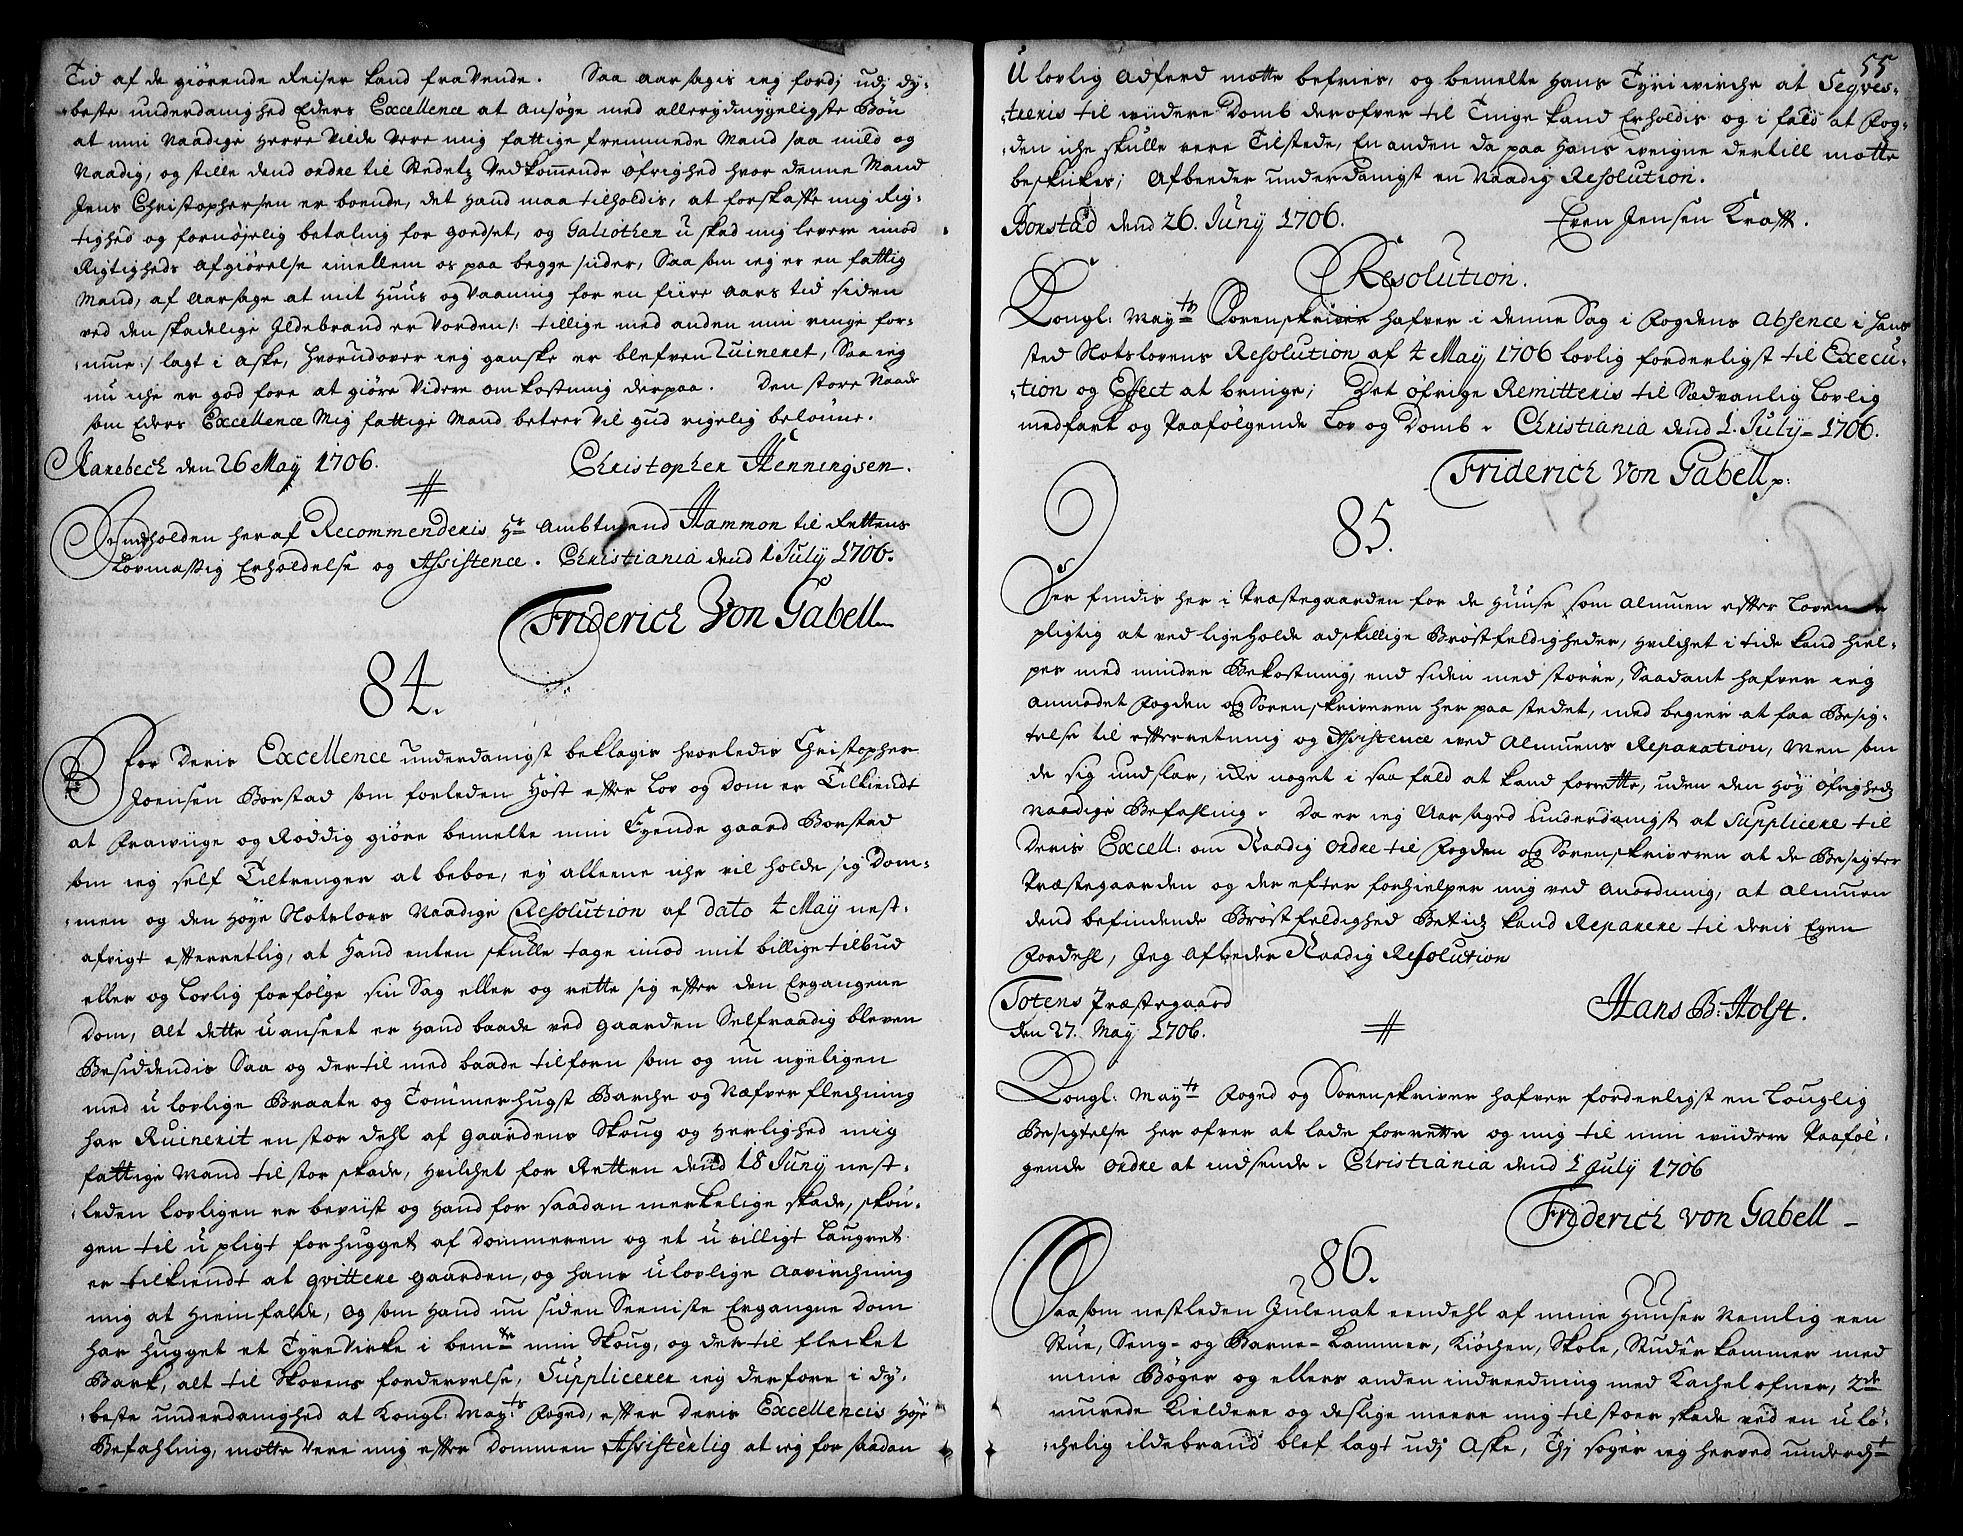 Tid af de giörende Reiser kand fravende. Saa aarsagis ieg fordj udj dy-
beste underdanighed Eders Excellence at ansøge med allerydmygeligste Bön
at min Naadige Herre vilde vere mig fattige fremmede Mand saa mild og
Naadig, og stille dend ordre til Stedetz Vedkommende Öfrighed hvor denne Mand
Jens Christophersen er boende, det Hand maa tilholdis, at forskaffe mig Rig-
tighed og fornøjelig betaling for goedset, og Galiothen u skad mig levere imod
Rigtigheds afgiørelse imellem os paa begge sider, Saa som ieg er en fattig
Mand, af aarsage at mit Huus og Vaaning for en fiire aars tid siden
ved den skadelige Ildebrand er Vorden /: tillige med anden min ringe for-
mue :/ lagt i aske, hvorudover ieg ganske er blefven Ruineret, Saa ieg
nu iche er god fore at giöre videre omkostning derpaa. Den store Naade
som Eders Excellence Mig fattige Mand beteer vil gud rigelig belönne.
Rarebech den 26 May 1706. Christopher Henningsen.
Indholden heraf Recommenderis Hr Ambtmand Hammon til Rettens
Lovmassig Erholdelse og Assistence. Christiania dend 1 July 1706.
Friderich Von Gabell
84.
For Deris Excellence underdanigst beklagis hvorledis Christopher
Joensen Borstad som forleden Höst efter Lov og Dom er Tilkiendt
at fraviige og Röddig giöre bemelte min Eyende gaard Borstad
som ieg self Tiltrenger at beboe, ey alleene iche vil holde sig Dom-
men og den Höye Slotslovs Naadige Resolution af dato 4 May nest-
afvigt efterretlig, at Hand enten skulle tage imod mit billige tilbud
eller og Lovlig forfölge sin Sag eller og rette sig efter den Ergangene
Dom, alt dette uanseet er Hand baade ved gaarden Selfraadig bleven
Besiddendis Saa og dertil med baade tilforn som og nu nyeligen
med u lovlige Braate og Tömmerhugst Barche og Næfver flechning
har Ruinerit en stor dehl af gaardens Skoug og Herlighed mig
fattige Mand til stor skade, hvilchet for Retten dend 18 Juny nest-
leden Lovligen er beviist og Hand for saadan merkelige skade, skou-
gen til u pligt forhugget af Dommeren og et u villigt Laugret
er tilkiendt at qvittere gaarden, og hans ulovlige Aavirchning
mig at Hiemfalde, og som Hand nu siden Seeniste Ergangne Dom
har hugget et Tyre Virke i bemte min Skoug, og der til flecket
Bark, alt til Skovens fordervelse, Supplicerer ieg derfore i dy-
beste underdanighed at Kongl: Mayts Foged, efter Deris Excellencis höye
Befahling, motte Vere mig efter Dommen Assistenlig at ieg for saadan
55
U lovlig Adferd motte befries, og bemelte Hans Tyri wirche at Seqves-
treris til widere Domb derofver til Tinge kand Erholdis og i fald at Fog-
den iche skulle vere Tilstede, En anden da paa Hans weigne dertill motte
beskickes; Afbeeder underdanigst en Naadig Resolution.
Borstad dend 26. Juny 1706. Even Jensen Kraft.
Resolution.
Kongl: Mayts Sorenskriver hafver i denne Sag i Fogdens Absence i Hans
sted Slotslovens Resolution af 4 May 1706 lovlig forderligst til Execu-
tion og Effect at bringe; Det öfrige Remitteris til Sædvanlig Lovlig
medfart og Paafölgende Lov og Domb. Christiania dend 1. July 1706.
Friderich Von Gabell p:
85.
Her findis her i Præstegaarden for de Huuse som almuen efter Loven er
pligtig at ved lige Holde adskillige Bröstfeldigheder, hvilchet i tide kand hiel-
pes med mindre Bekostning, end siden med större, Saadant hafver ieg
anmodet Fogden og Sorenskriveren her paa stedet, med begier at faa Besig-
telse til efterretning og Assistence ved Almuens Reparation, Men som
de sig undslar, icke noget i saa fald at kand forrette, uden den Höy Öfrigheds
Naadige Befahling. Da er ieg Aarsaged underdanigst at Supplicere til
Deris Excell: om Naadig ordre til Fogden og Sorenskriveren at de Besigter
Præstegaarden og der efter forhielper mig ved anordning, at almuen
dend befindende Bröstfeldighed Betids kand Reparere til deris Egen
Fordehl, Jeg Afbeder Naadig Resolution
Totens Præstegaard Hans B: Holst.
den 27. May 1706.
Kongl: Mayts Foged og Sorenskriver hafver forderligst en Louglig
Besigtelse her ofver at lade forrette og mig til min widere Paaföl-
gende ordre at indsende. Christiania dend 1 July 1706
Friderich von Gabell
86.
Saasom nestleden Julenat eendehl af mine Huuser Nemlig een
Stue, Seng- og Barne-Kammer, Kiöchen, Skole, Studer kammer med
mine Böger og ellers anden indreedning med Kachelofner, 2de
murede Kieldere og deslige meere mig til stoer skade ved en u lö-
chelig ildebrand blef lagt udj Aske, Thj söger ieg herved underdt